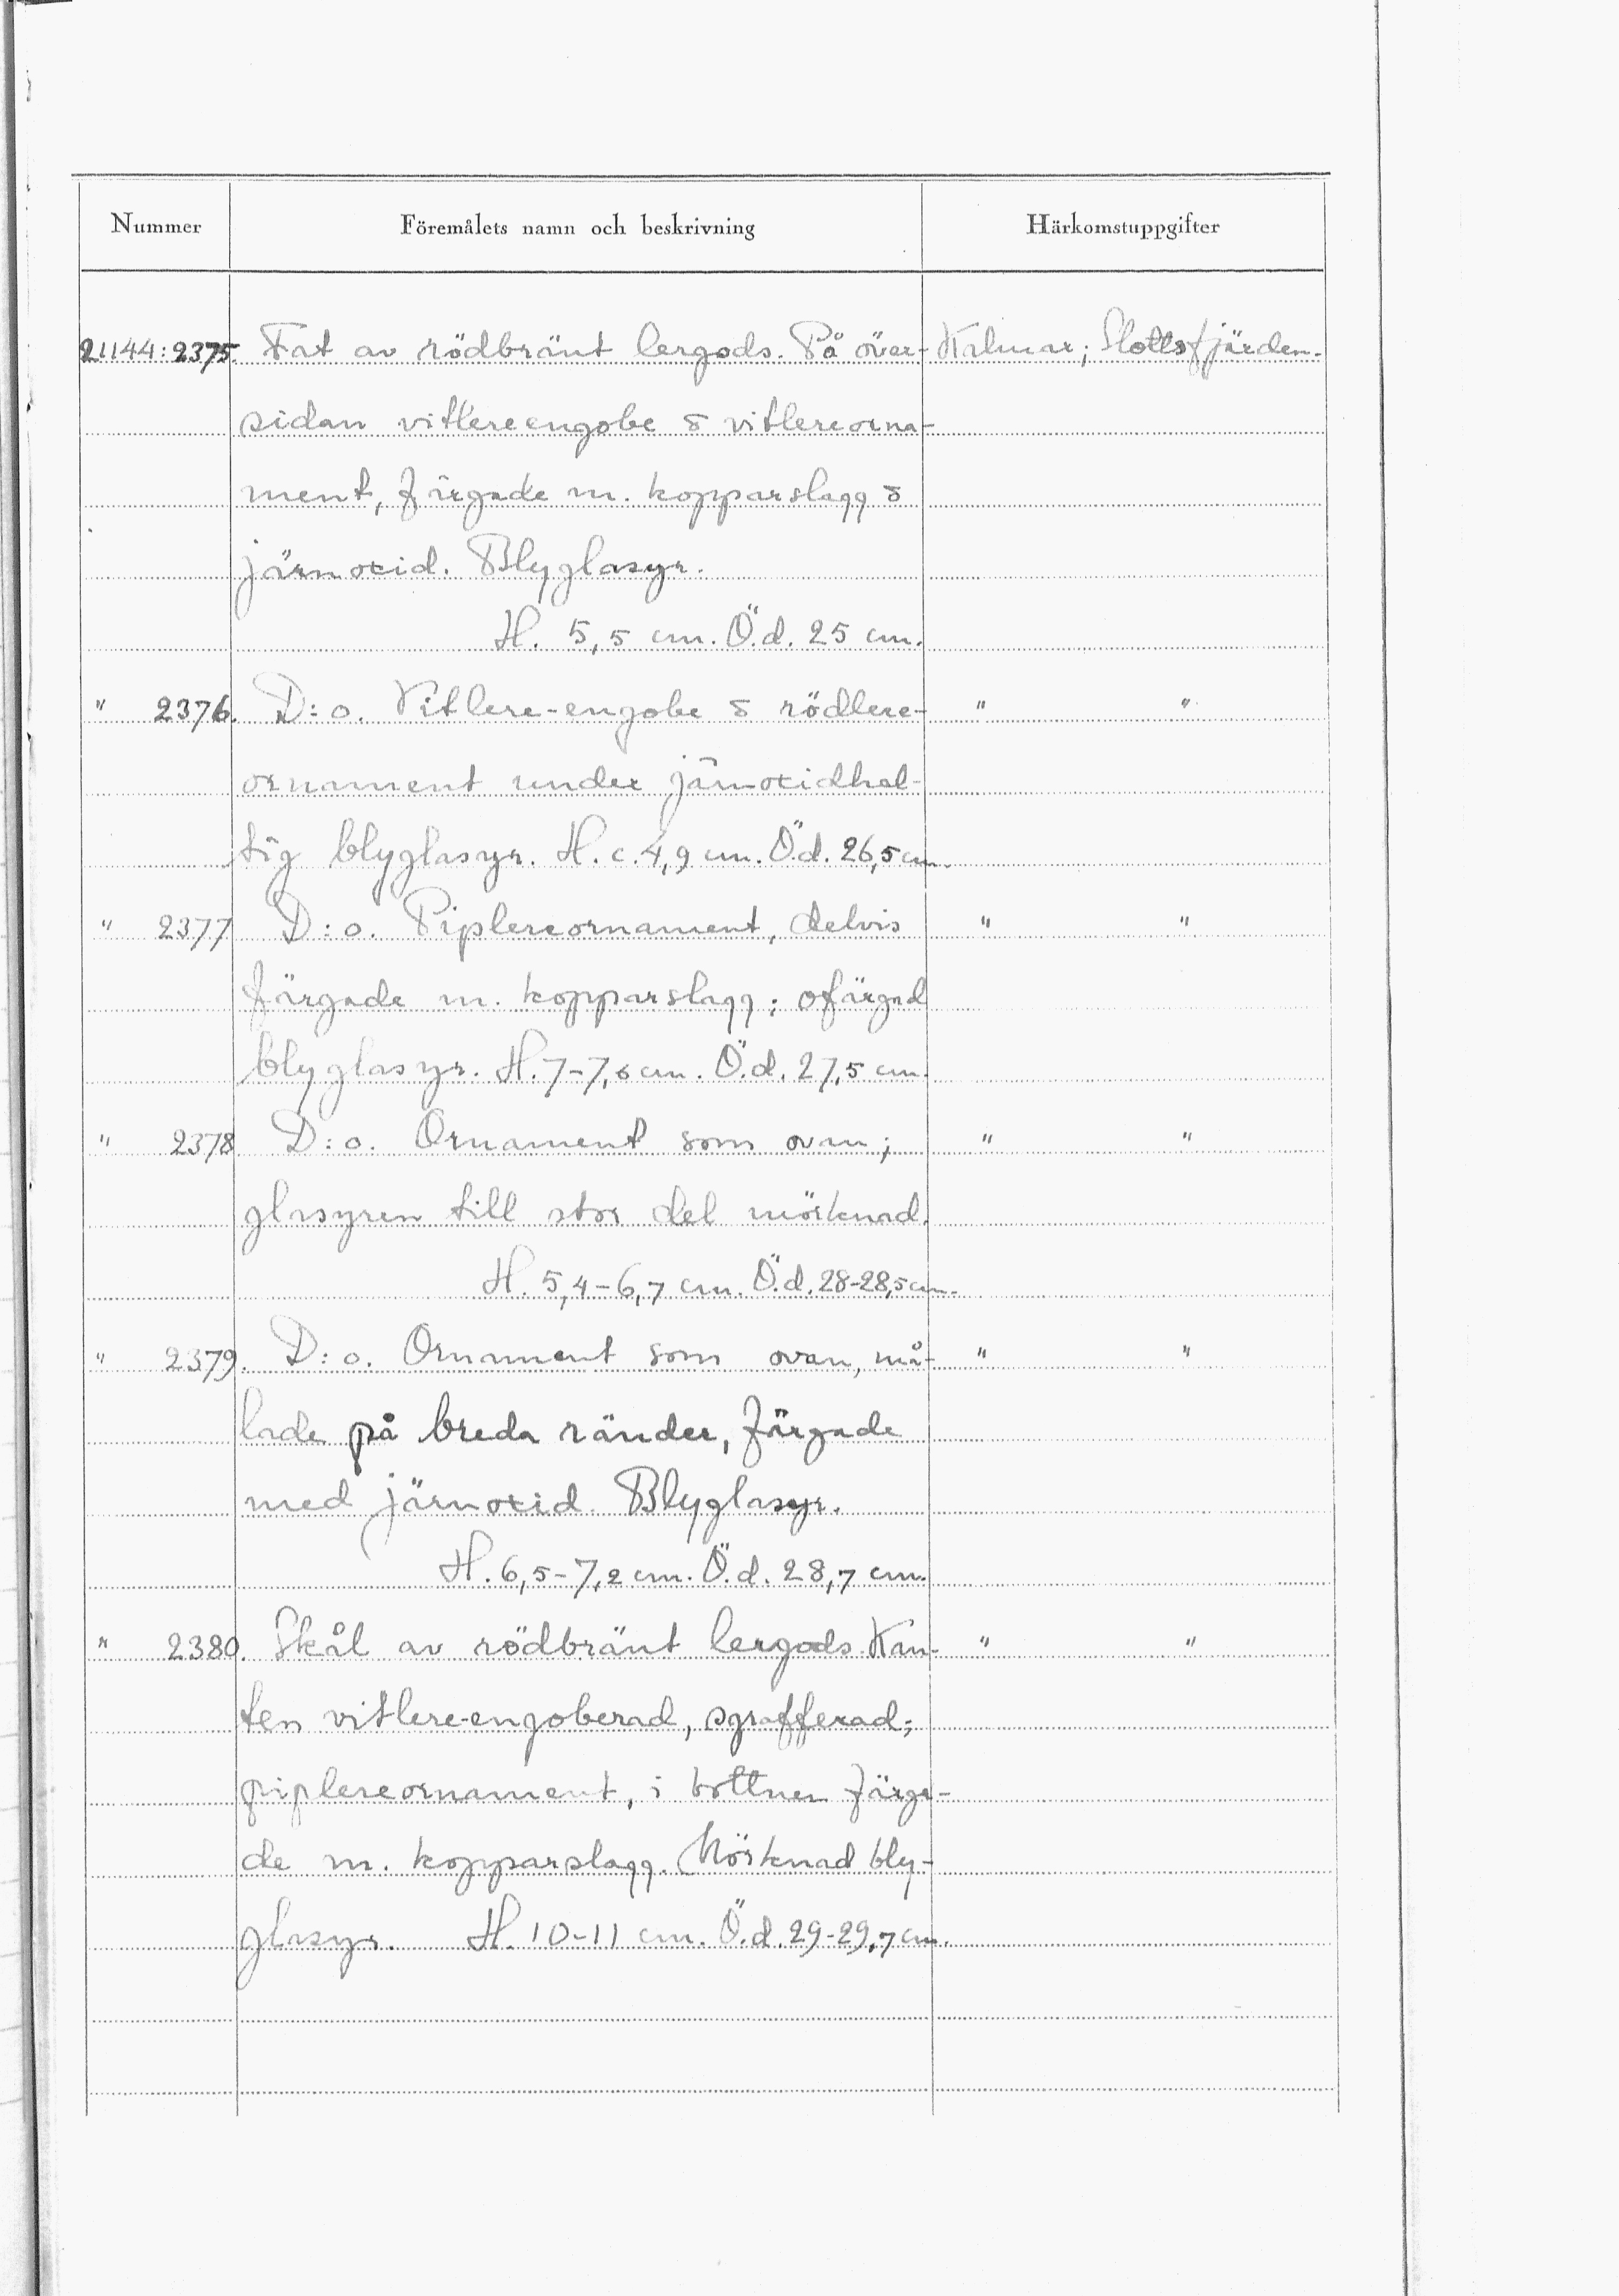 Nummer Föremålets namn och beskrivning Härkomstuppgifter
21144:2375. Fat av rödbränt lergods. På över- Kalmar; Slottsfjärden.
sidan vitlereengobe o vitlereorna-
ment, färgade m. kopparslagg o
järnoxid. Blyglasyr.
H. 5,5 cm. Ö.d. 25 cm.
" 2376. D:o. Vitlere-engobe o rödlere- " "
ornament under järnoxidhal-
tig blyglasyr. H. c. 4,9 cm. Ö.d. 26,5 cm.
" 2377 D:o. Piplereornament, delvis " "
färgade m. kopparslagg; ofärgad
blyglasyr. H. 7-7,6 cm. Ö.d. 27,5 cm.
" 2378 D:o. Ornament som ovan; " "
glasyren till stor del mörknad.
H. 5,4-6,7 cm. Ö.d. 28-28,5 cm.
" 2379. D:o. Ornament som ovan, må- " "
lade på breda ränder, färgade
med järnoxid. Blyglasyr.
H. 6,5-7,2 cm. Ö.d. 28,7 cm.
" 2380. Skål av rödbränt lergods. Kan- " "
ten vitlere-engoberad, sgrafferad;
piplereornament, i bottnen färga-
de m. kopparslagg. Mörknad bly-
glasyr. H. 10-11 cm. Ö.d. 29-29,7 cm.